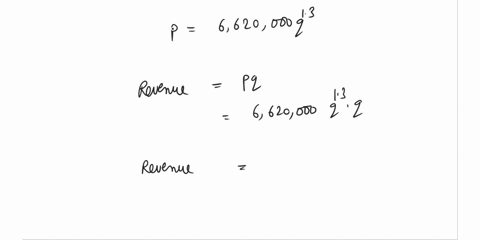 p = 6,620,000 q^1.3
Revenue = pq
= 6,620,000 q^1.3 · q
Revenue =